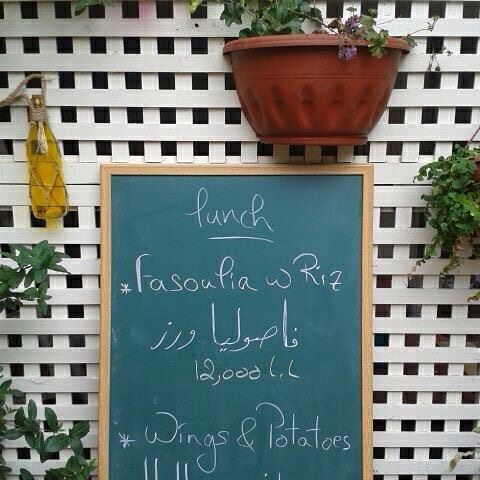 lunch
* Fasoulia w Riz
فاصوليا ورز
12,000 L.L
* Wings & Potatoes